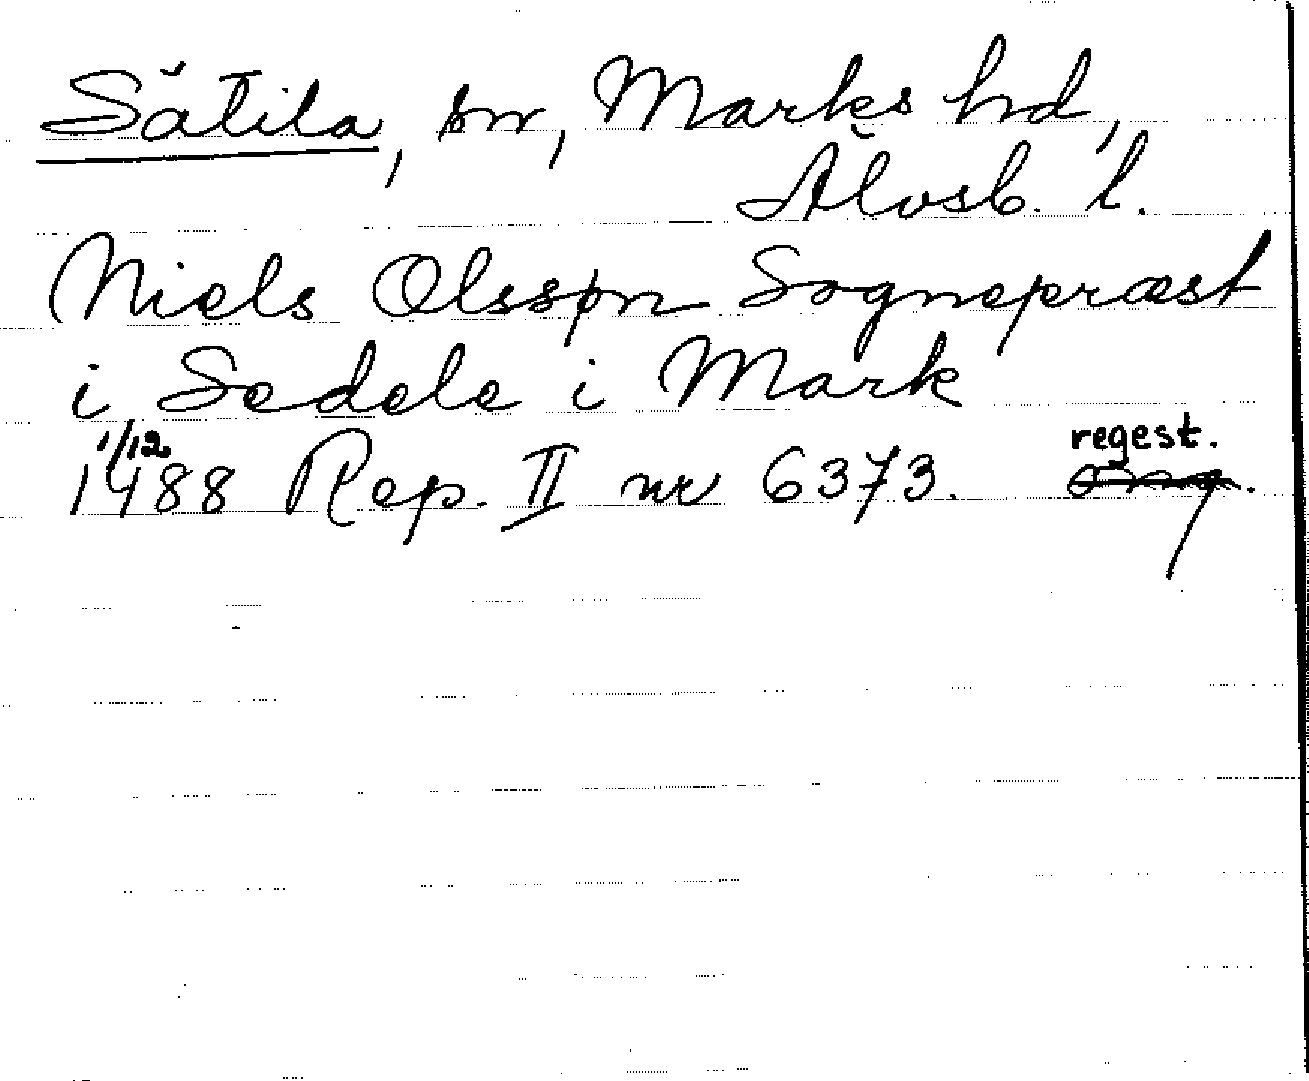 Sätila, sn, Marks hd,
Älvsb. l.
Niels Olssøn Sognepræst
i Sedele i Mark
1/12
1488 Rep. II nr 6373. regest.